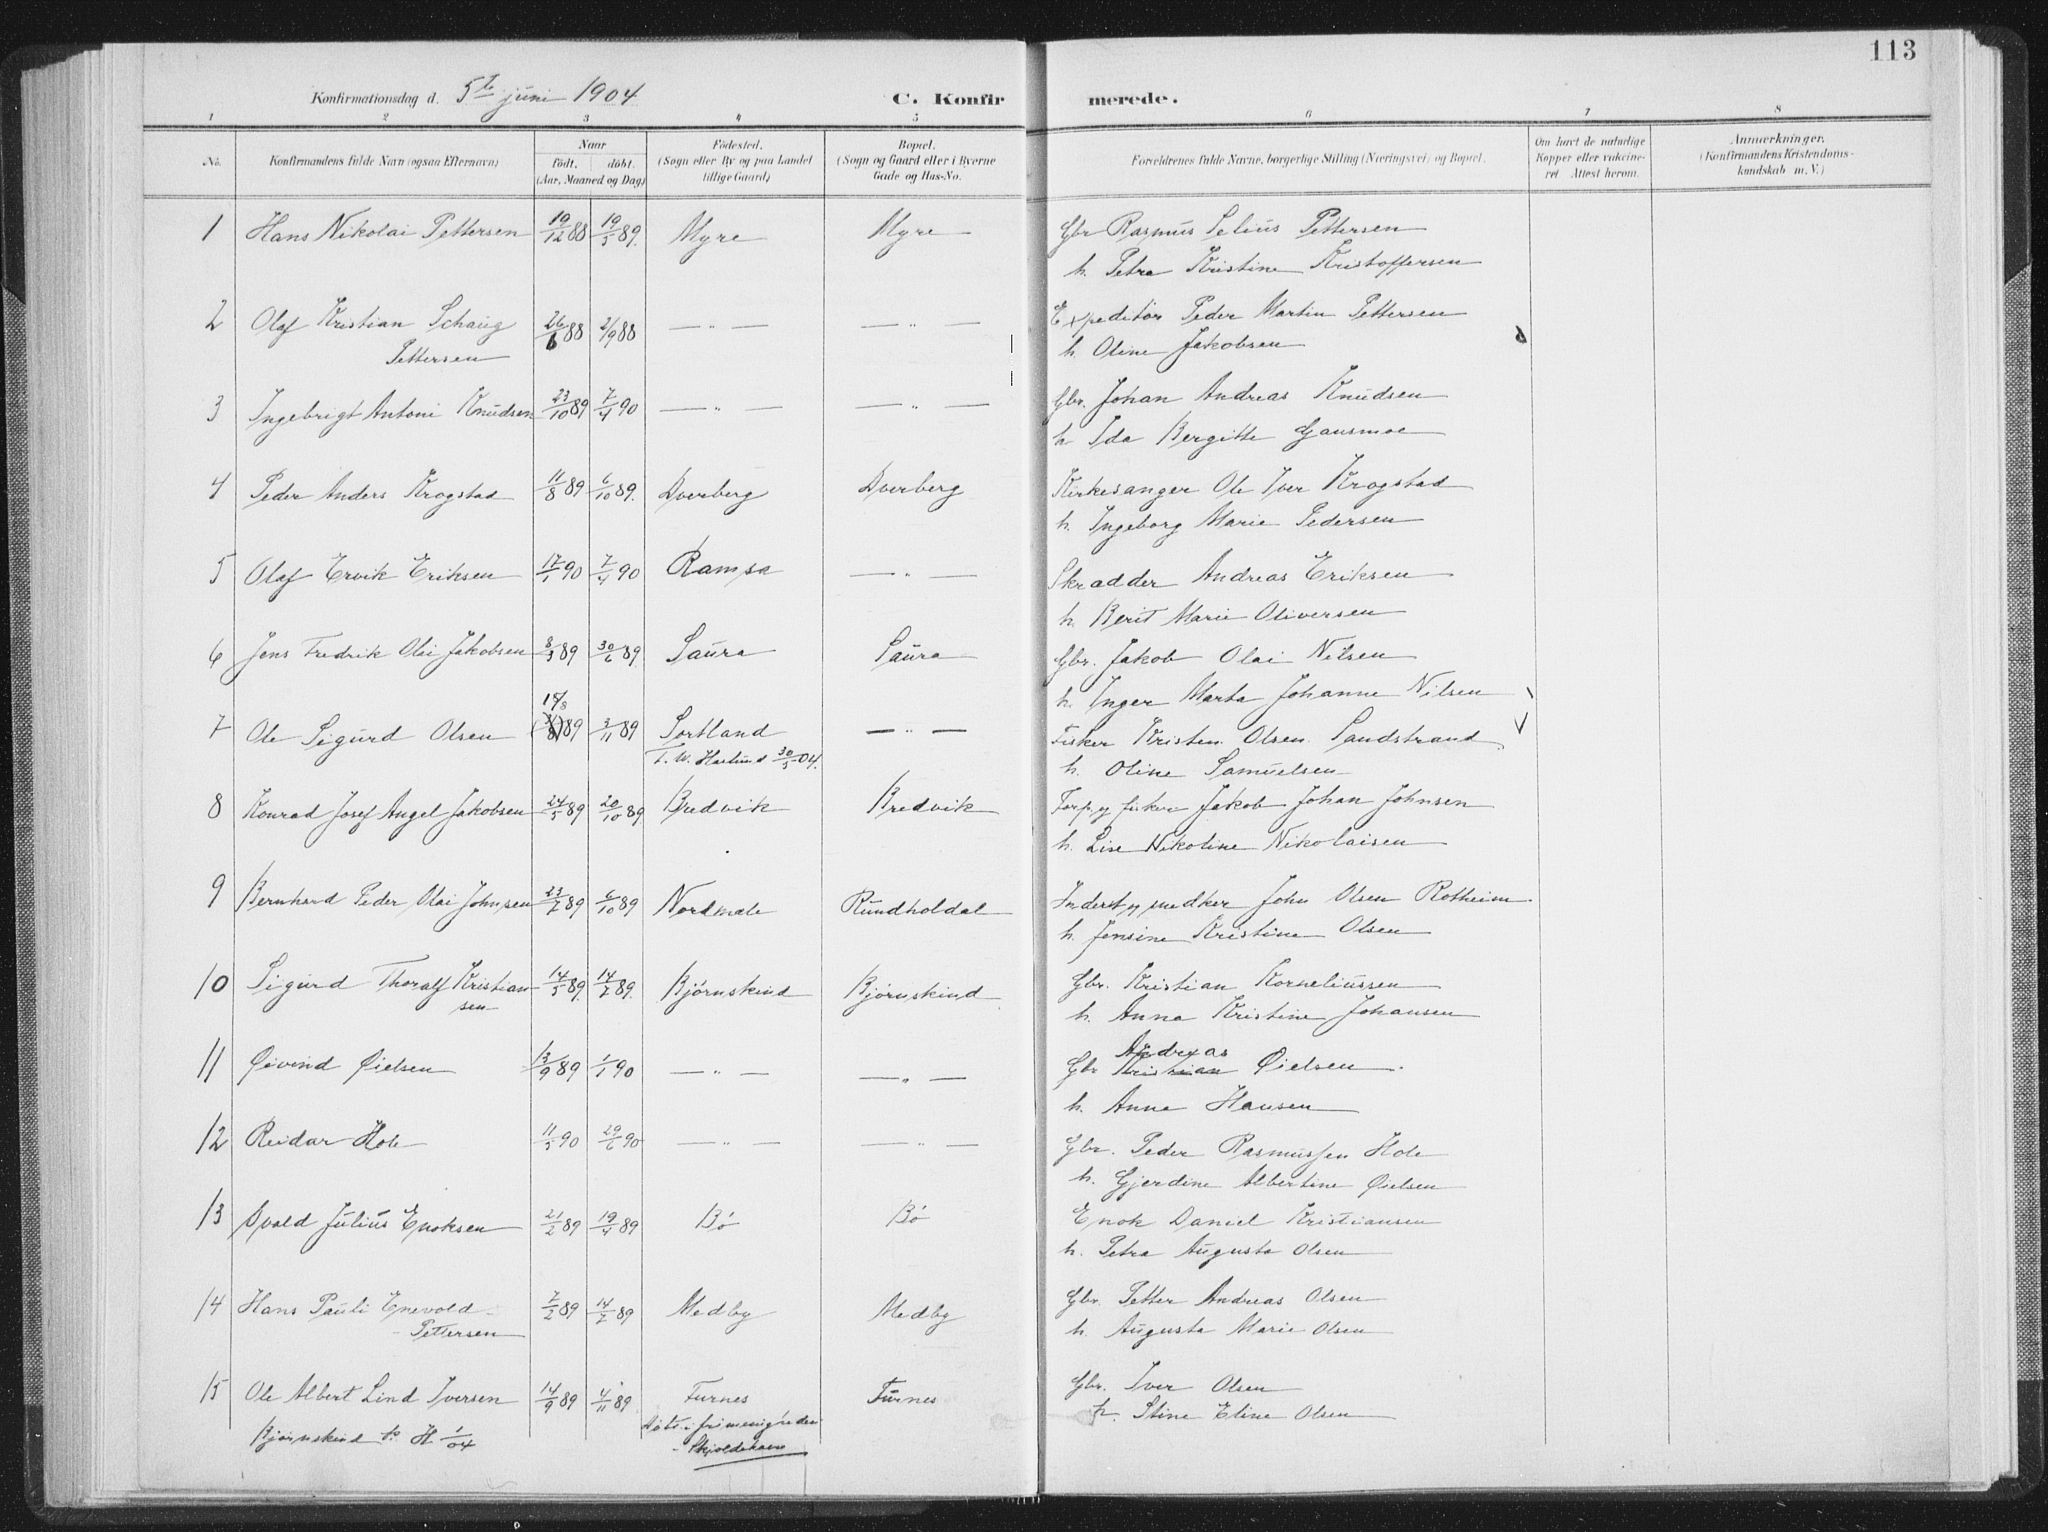 113
Konfirmationsdag d. 5te juni 1904 C. Konfirmerede.
1 2 3 4 5 6 7 8
No. Konfirmandens fulde Navn (ogsaa Efternavn) Naar födt. döbt. (Aar, Maaned og Dag) Födested. (Sogn eller By og paa Landet tillige Gaard) Bopæl. (Sogn og Gaard eller i Byerne Gade og Hus-No. Forældrenes fulde Navne, borgerlige Stilling (Næringsvei) og Bopæl. Om havt de naturlige Kopper eller vaccineret Attest herom. Anmærkninger. (Konfirmandens Kristendomskundskab m.V.)
1 Hans Nikolai Pettersen 19/12 88 19/5 89. Myre Myre Gbr Rasmus Selius Pettersen
h. Petra Kristine Kristoffersen
2 Olaf Kristian Schaug 26/6 88 2/9 88 — " — — " — Expeditør Peder Martin Pettersen
Pettersen h. Oline Jakobsen
3 Ingebrigt Antoni Knudsen 23/10 89 7/4 90 — " — — " — Gbr. Johan Andreas Knudsen
h. Ida Bergitte Gausmoe
4 Peder Anders Krogstad 11/8 89 6/10 89. Dverberg Dverberg Kirkesanger Ole Iver Krogstad
h. Ingeborg Marie Pedersen
5 Olaf Ervik Eriksen 17/1 90 7/4 90 Ramsa — " — Skrædder Andreas Eriksen
h. Berit Marie Oliversen
6 Jens Fredrik Olai Jakobsen 8/3 89 30/6 89. Saura Saura Gbr. Jakob Olai Nilsen
h. Inger Marta Johanne Nilsen
7 Ole Sigurd Olsen 89 3/11 89 Sortland — " — Fisker Kristen Olsen Sandstrand
30/5 04. h. Oline Samuelsen
8 Konrad Josef Angel Jakobsen 24/5 89 20/10 89 Bredvik Bredvik fisker Jakob Johan Johnsen
h. Lise Nikoline Nikolaisen
9 Bernhard Peder Olai Johnsen 23/7 89 6/10 89 Nordmele Rundholdal Inderst og snedker John Olsen Rotheim
h. Jensine Kristine Olsen
10 Sigurd Thoralf Kristian- 14/5 89. 14/7 89. Bjørnskind Bjørnskind Gbr. Kristian Korneliussen
sen h. Anna Kristine Johansen
11 Øivind Øielsen 13/9 89 1/1 90 — " — — " — Gbr Andreas Kristian Øielsen
h. Anna Hansen
12 Reidar Hole 11/5 90 29/6 90 — " — — " — Gbr. Peder Rasmussen Hole
h. Gjerdine Albertine Øielsen
13 Osvald Julius Enoksen 21/2 89 19/4 89 Bö Bö Enok Daniel Kristiansen
h. Petra Augusta Olsen
14 Hans Pauli Enevold- 7/2 89 14/7 89 Medby Medby Gbr. Petter Andreas Olsen
Pettersen h. Augusta Marie Olsen
15 Ole Albert Lind Iversen 14/9 89 4/11 89 Furnes Furnes Gbr. Iver Olsen
Døbt i frimenigheden h. Stine Eline Olsen
Bjørnskind 1/04 Skjoldehavn